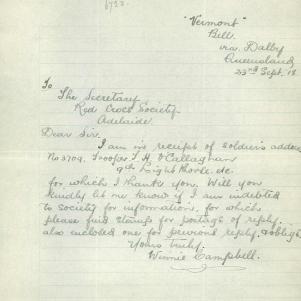 "Vermont"
Bell.
via Dalby
Queensland
23rd Sept. 18
To
The Secretary
Red Cross Society
Adelaide.
Dear Sir.
I am in receipt of soldier's address
No 3709. Trooper T. H. O'Callaghan
9th Light Horse. etc.
for which I thank you. Will you
kindly let me know if I am indebted
to society for information, for which
please find stamps for postage of reply.
also included one for previous reply, & oblige
Yours truly.
Winnie Campbell.